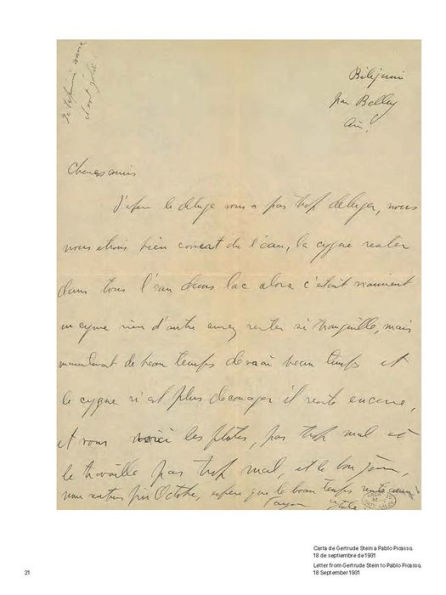 Bilignin
par Belley
Ain
Chers amis
J'espere le deluge vous a pas trop deluger, nous
nous etions bien couvert de l'eau, la cygne rester
dans tous l'eau dans lac alors c'etait vraiment
un cygne rien d'autre rester si tranquille, mais
maintenant de beau temps de vrai beau temps et
le cygne n'est plus decourager il reste encore,
et vous voici les photos, pas trop mal et
le travaille pas trop mal, et le bon
nous Octobre, espere que le beau temps reste
Carta de Gertrude Stein a Pablo Picasso,
18 de septiembre de 1931
Letter from Gertrude Stein to Pablo Picasso,
18 September 1931
21